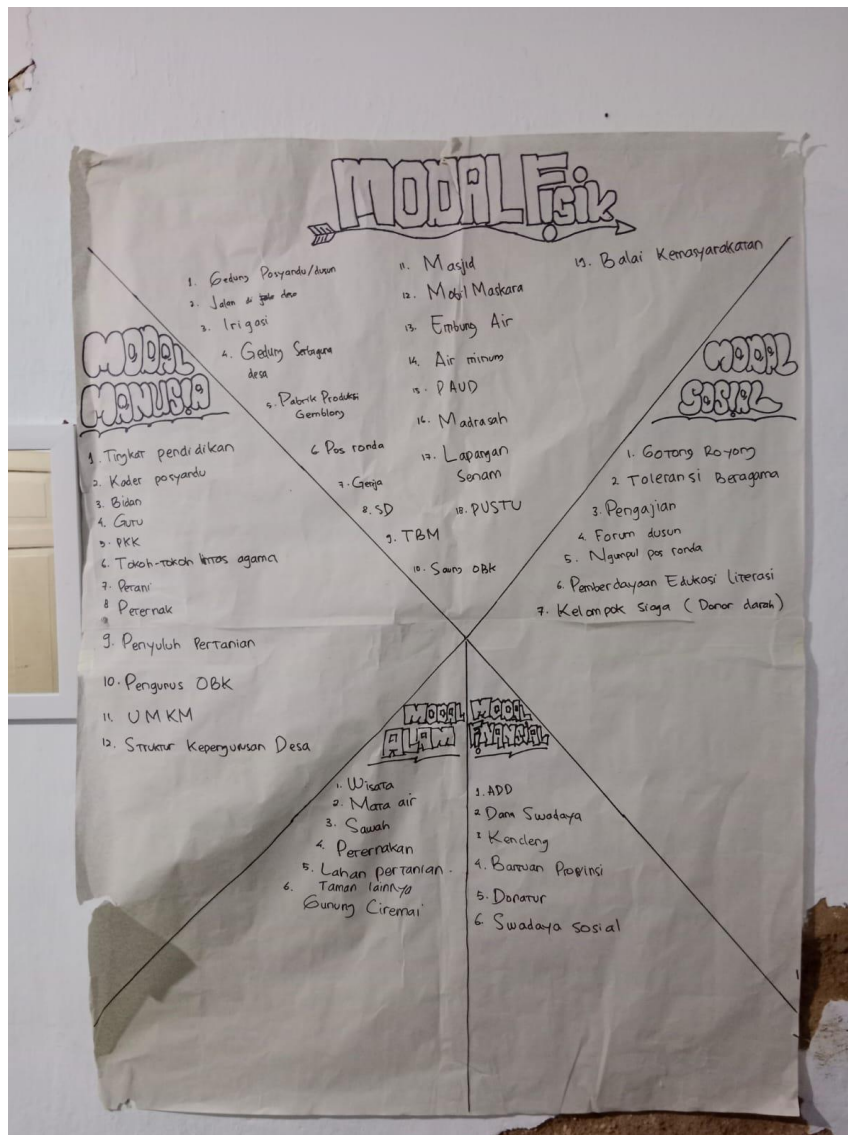 MODAL FisiK
1. Gedung Posyandu/dusun
2. Jalan di desa
3. Irigasi
4. Gedung Serbaguna
desa
5. Pabrik Produksi
Gemblong
6. Pos ronda
7. Gereja
8. SD
9. TBM
10. Saung OBK
11. Masjid
12. Mobil Maskara
13. Embung Air
14. Air minum
15. PAUD
16. Madrasah
17. Lapangan
Senam
18. PUSTU
19. Balai Kemasyarakatan
MODAL
MANUSIA
1. Tingkat pendidikan
2. Kader posyandu
3. Bidan
4. Guru
5. PKK
6. Tokoh-tokoh lintas agama
7. Petani
8 Peternak
9. Penyuluh Pertanian
10. Pengurus OBK
11. UMKM
12. Struktur Kepengurusan Desa
MODAL
SOSIAL
1. Gotong Royong
2 Toleransi Beragama
3. Pengajian
4. Forum dusun
5. Ngumpul pos ronda
6. Pemberdayaan Edukasi Literasi
7. Kelompok Siaga (Donor darah)
MODAL
ALAM
1. Wisata
2. Mata air
3. Sawah
4. Peternakan
5. Lahan pertanian.
6. Taman lainnya
Gunung Ciremai
MODAL
FINANSIAL
1. ADD
2 Dana Swadaya
3 Kencleng
4. Bantuan Provinsi
5. Donatur
6. Swadaya sosial